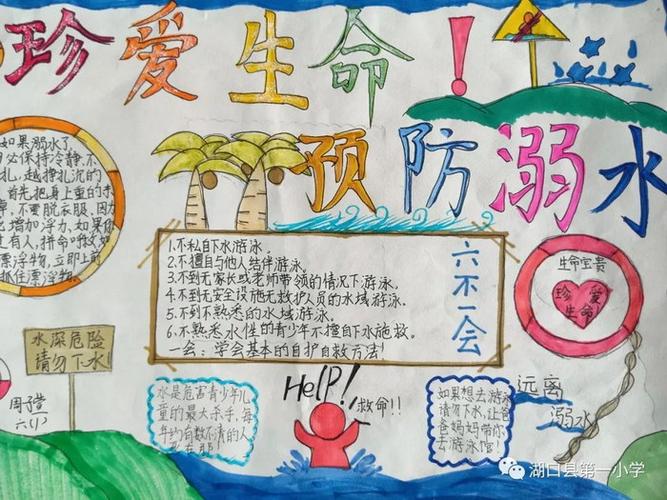 珍爱生命!
预防溺水
如果溺水了
必保持冷静,不
扎,越挣扎沉的
首先把身上重的
不要脱衣服,因
增加浮力,如果
有人,拼命呼救如
漂浮物,立即上前
抓住漂浮物。
1.不私自下水游泳。
2.不擅自与他人结伴游泳。
3.不到无家长或老师带领的情况下游泳。
4.不到无安全设施无救护人员的水域游泳。
5.不到不熟悉的水域游泳。
6.不熟悉水性的青少年不擅自下水施救。
一会:学会基本的自护自救方法!
六不一会
生命宝贵
珍爱
生命
水深危险
请勿下水!
周子萱
六(1)
水是危害青少年儿
童的最大杀手,每
年约有数不清的人
死在那
HELP!
救命!!
如果想去游泳
请勿下水,让爸
爸妈妈带你
去游泳馆!
远离
溺水
湖口县第一小学